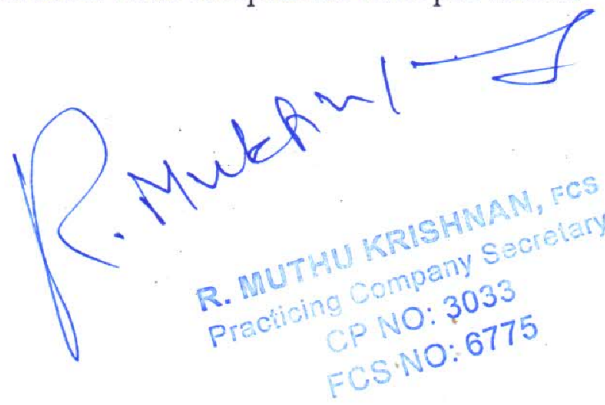 R. Muthu
R. MUTHU KRISHNAN, FCS
Practicing Company Secretary
CP NO: 3033
FCS NO: 6775